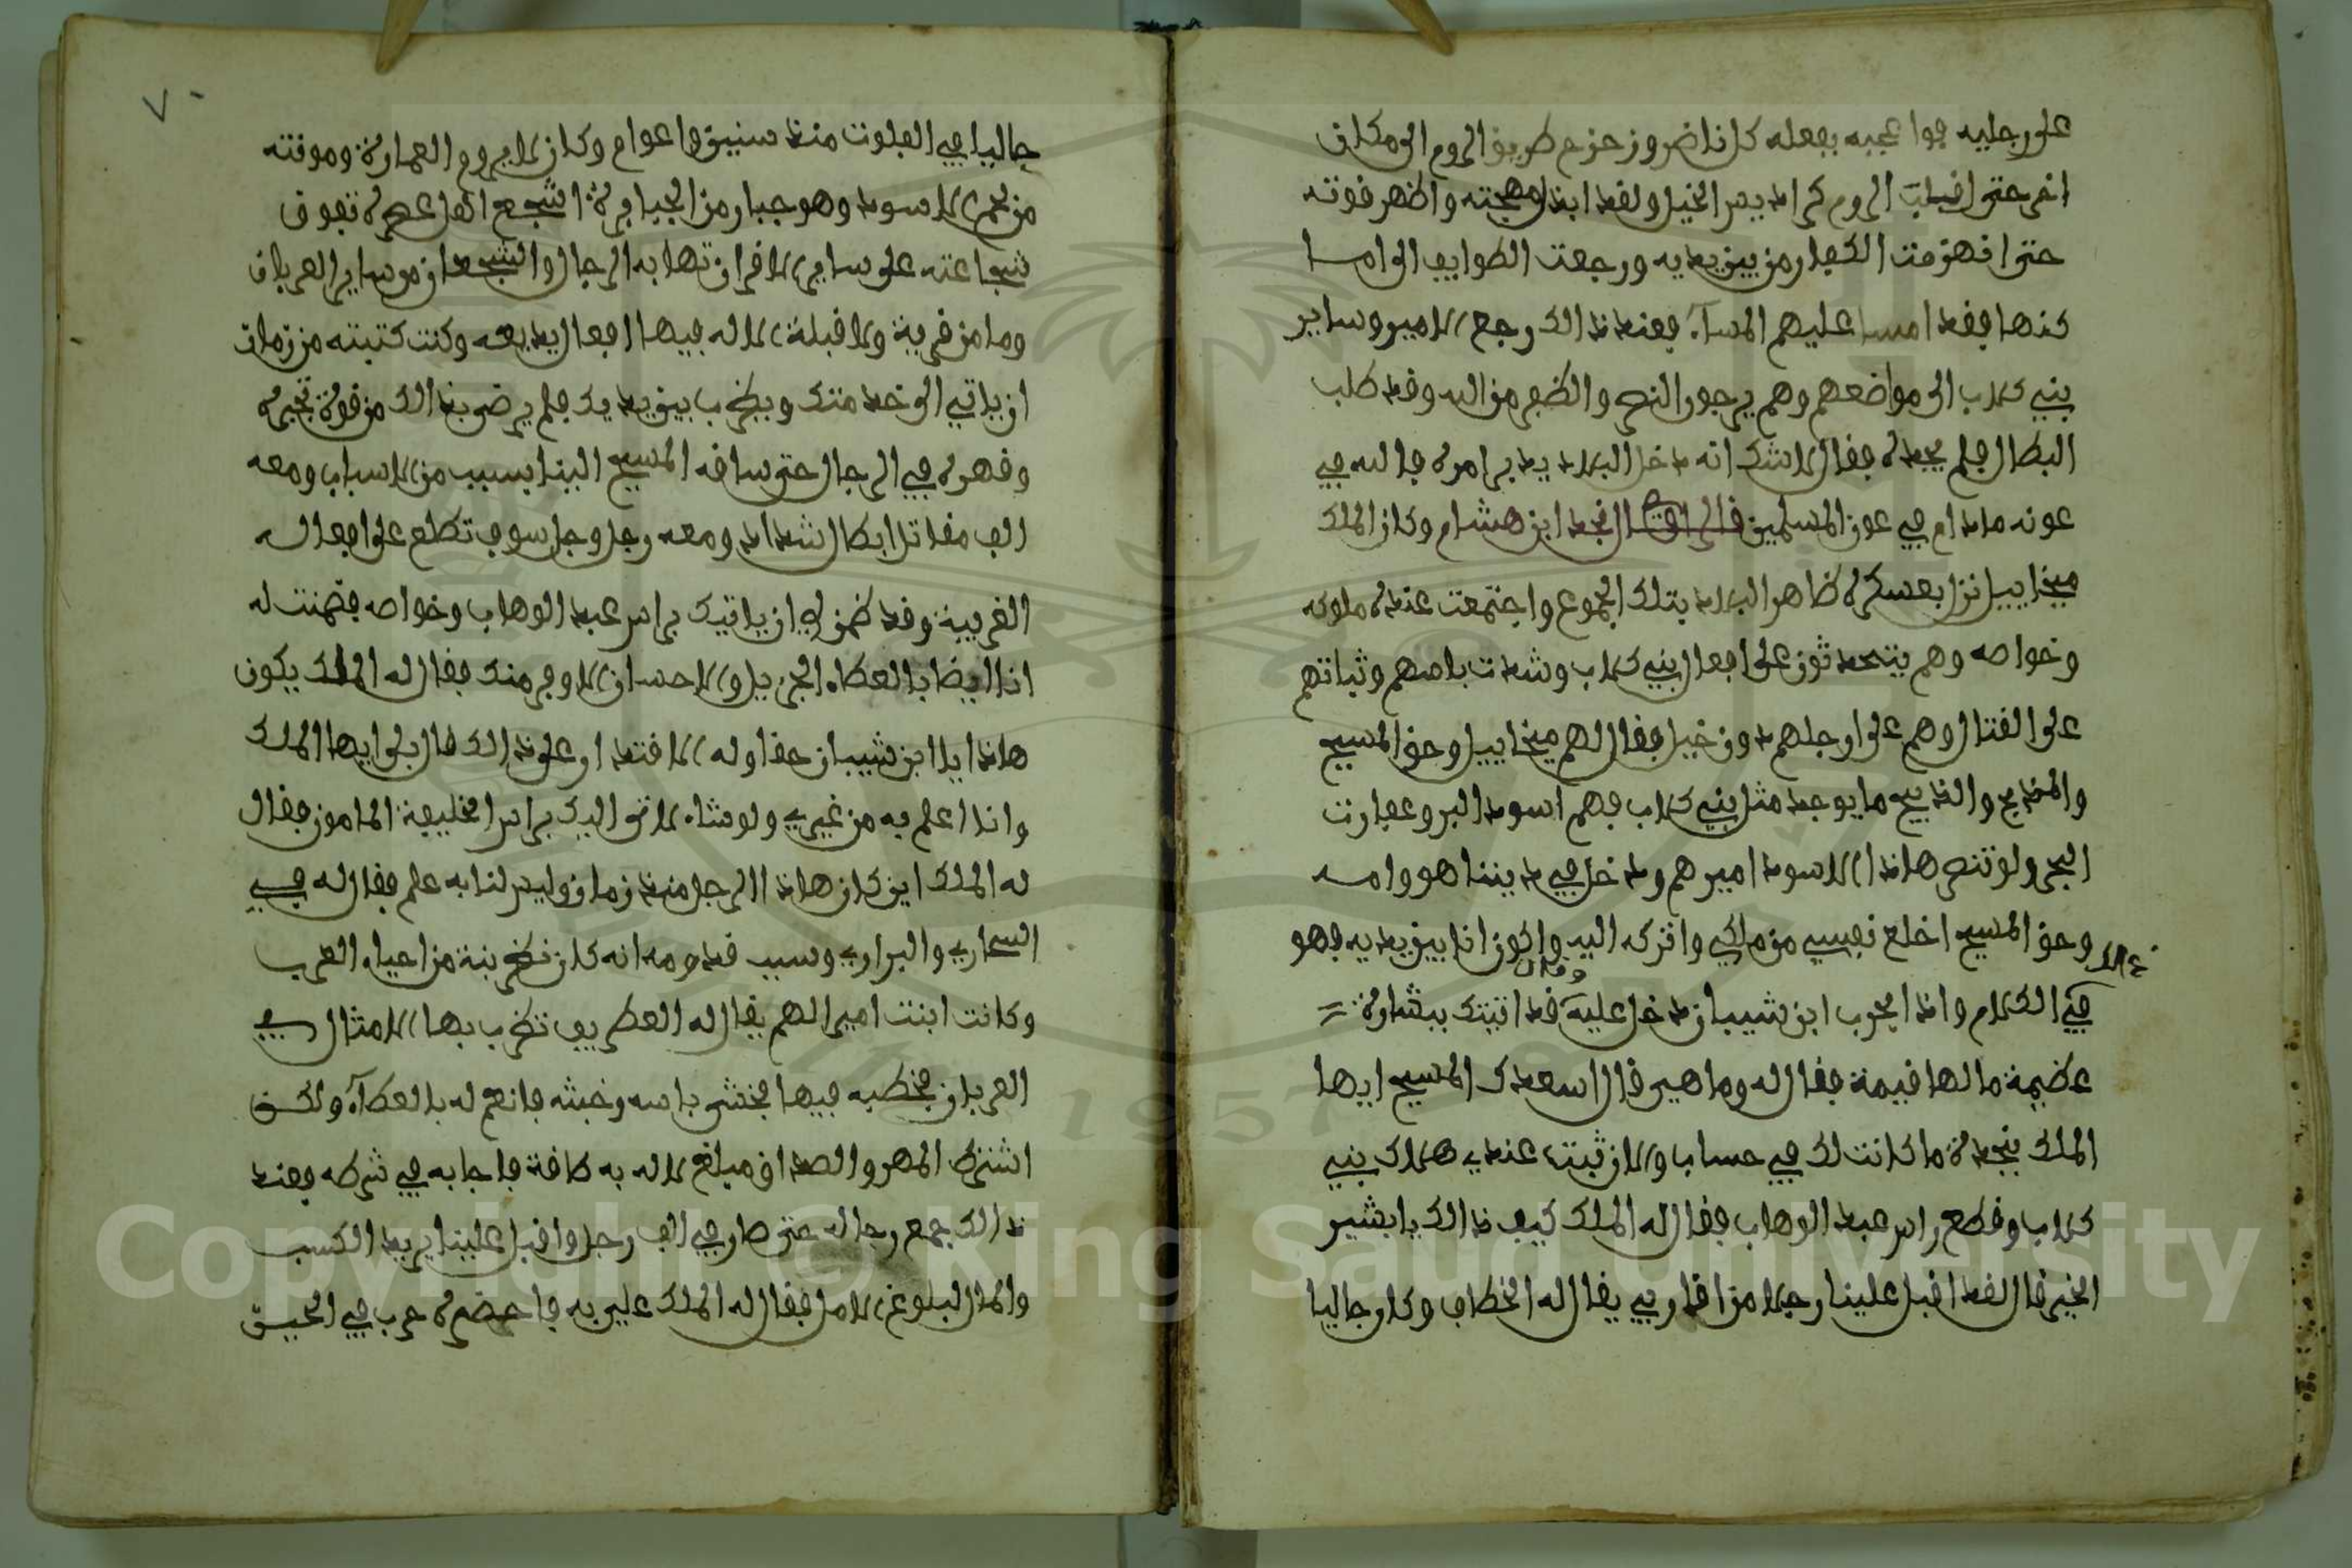 على رجليه فوا عجبه بفعله كل ناضر وزحزح طريق الروم الى مكان
اخر حتى اقبلت الروم كراديس الخيل ولقد ابذل مهجته واظهر قوته
حتى انهزمت الكفار من بين يديه ورجعت الطوايف الى اما
كنها فقد امسا عليهم المساء فعند ذالك رجع الامير وساير
بني كلاب الى مواضعهم وهم يرجون النصر والظفر من الله وقد طلب
البطال فلم يجده فقال لاشك انه دخل البلاد يدبر امره فالله في
عونه مادام في عون المسلمين قال الراوى نجد ابن هشام وكان الملك
ميخاييل نزل بعسكره ظاهر البلاد بتلك الجموع واجتمعت عنده ملوكه
وخواصه وهم يتحدثون على افعال بني كلاب وشدت باسهم وثباتهم
على القتال وهم على ارجلهم دون خيل فقال لهم ميخاييل وحق المسيح
والمذبح والذبيح ما يوجد مثل بني كلاب فهم اسود البر وعفارت
البحر ولو تنصر هاذا الاسود اميرهم ودخل في ديننا هو وامه
وحق المسيح اخلع نفسي من ملكي واتركه اليه واكون انا بين يديه فهو
كذالك
في الكلام واذا بحرب ابن شيبان دخل عليه وقال قد اتيتك ببشارة
عظيمة ما لها قيمة فقال له وما هي قال اسعدك المسيح ايها
الملك بنجدة ما كانت لك في حساب والان ثبت عندي هلاك بني
كلاب وقطع راس عبد الوهاب فقال له الملك كيف ذالك يا بشير
الخير قال لقد اقبل علينا رجلا من اقاربي يقال له الخطاف وكان جاليا
٧٠
جاليا في الفلوت منذ سنين واعوام وكان لا يروم العمارة وموقته
من لحم الاسود وهو جبار من الجبابرة اشجع اهل عصره تفوق
شجاعته على ساير الاقران تهابه الرجال والشجعان من ساير العربان
وما من قرية ولا قبلة الا له فيها افعال بديعه وكنت كتبته من زمان
ان ياتي الى خدمتك ويضرب بين يديك فلم يرض بذالك من قوة تجبره
وقهره في الرجال حتى ساقه المسيح الينا بسبب من الاسباب ومعه
الف مقاتل ابطال شداد ومعه رجل وجل سوف تطلع على افعاله
الغريبة وقد ضمن لي ان ياتيك براس عبد الوهاب وخواصه فضمنت له
انا ايضا بالعطاء الجزيل والاحسان الاوفر منك فقال له الملك يكون
هاذا يا ابن شيبان حقا وله الاقتدار على ذالك قال بلى ايها الملك
وانا اعلم به من غيري ولو شاء لاتى اليك براس الخليفة المامون فقال
له الملك اين كان هاذا الرجل منذ زمان وليس لنا به علم فقال له في
السحاري والبراري وسبب قدومه انه كان نضر بنة من احياء العرب
وكانت ابنت اميرالهم يقال له الغطريف تضرب بها الامثال في
العربان فخطبه فيها فخشى باسه وخبثه فانعم له بالعطاء ولكن
اشترط المهر والصداق مبلغ لا له به طاقة فاجابه في شرطه فعند
ذالك جمع رجاله حتى صار في الف رجل واقبل علينا يريد الكسب
والمال لبلوغ الامل فقال له الملك علي به فاحضره حرب في الحين